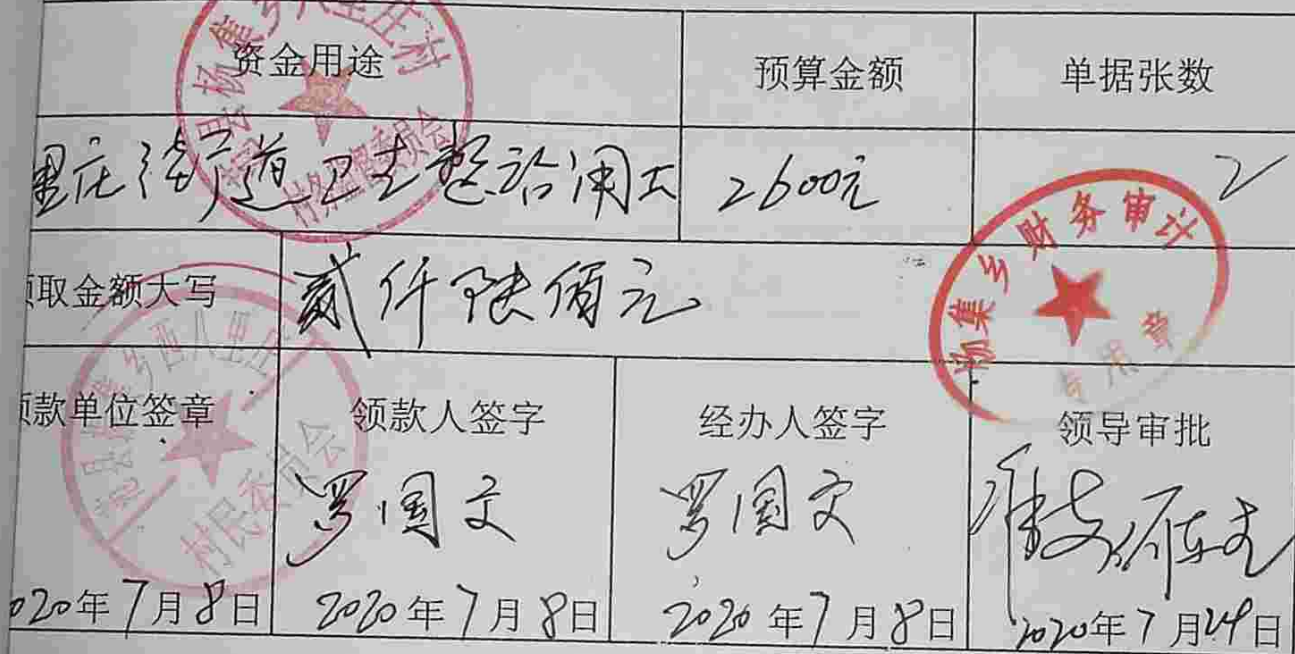 资金用途 预算金额 单据张数
里庄街道卫生整治用工 2600元 2
领取金额大写 贰仟陆佰元
领款单位签章 领款人签字 经办人签字 领导审批
罗国文 罗国文 准支
2020年7月8日 2020年7月8日 2020年7月8日 2020年7月24日
杨集乡八里庄村
村务监督委员会
杨集乡财务审计
专用章
范县杨集乡西八里庄
村民委员会